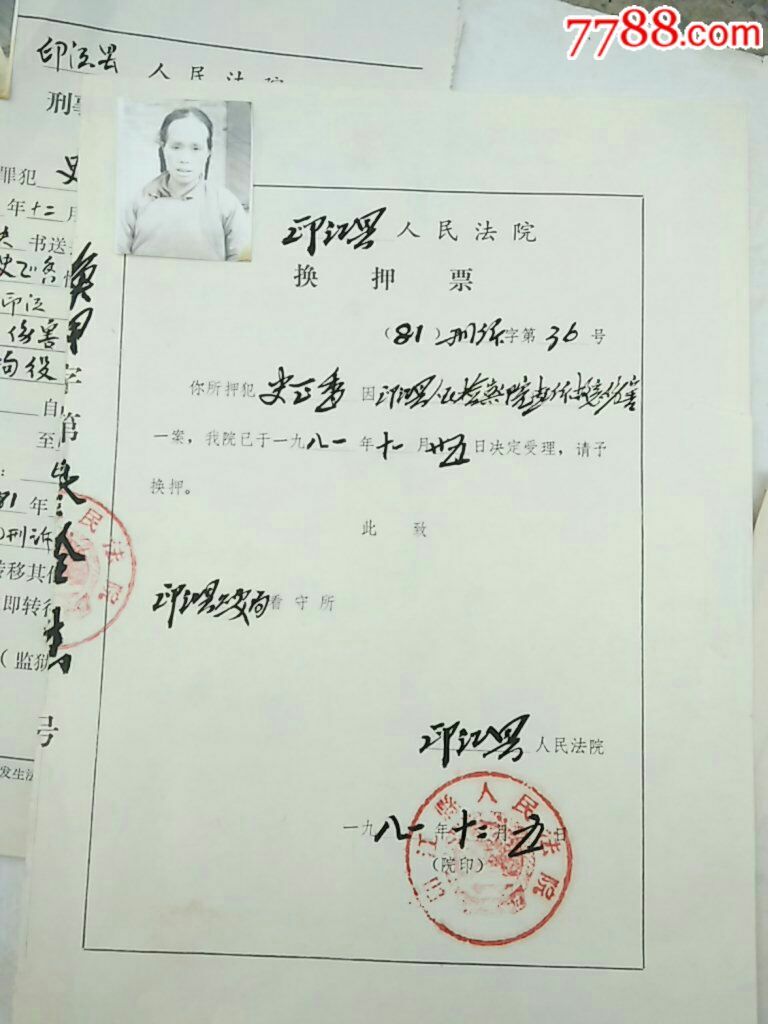 7788.com
印江县 人民法院
刑
罪犯 史
年十二月
书送
印江
伤害
拘役
自
至
81 年
刑诉
转移其他
即转
（监狱
号
发生法
字第
印江县人民法院
换押票
（81）刑诉字第36号
你所押犯 史正香 因印江县人民检察院
一案，我院已于一九八一年十一月廿五日决定受理，请予
换押。
此致
印江县公安局看守所
印江县人民法院
一九八一年十二月五日
（院印）
印江县人民法院
人民法院